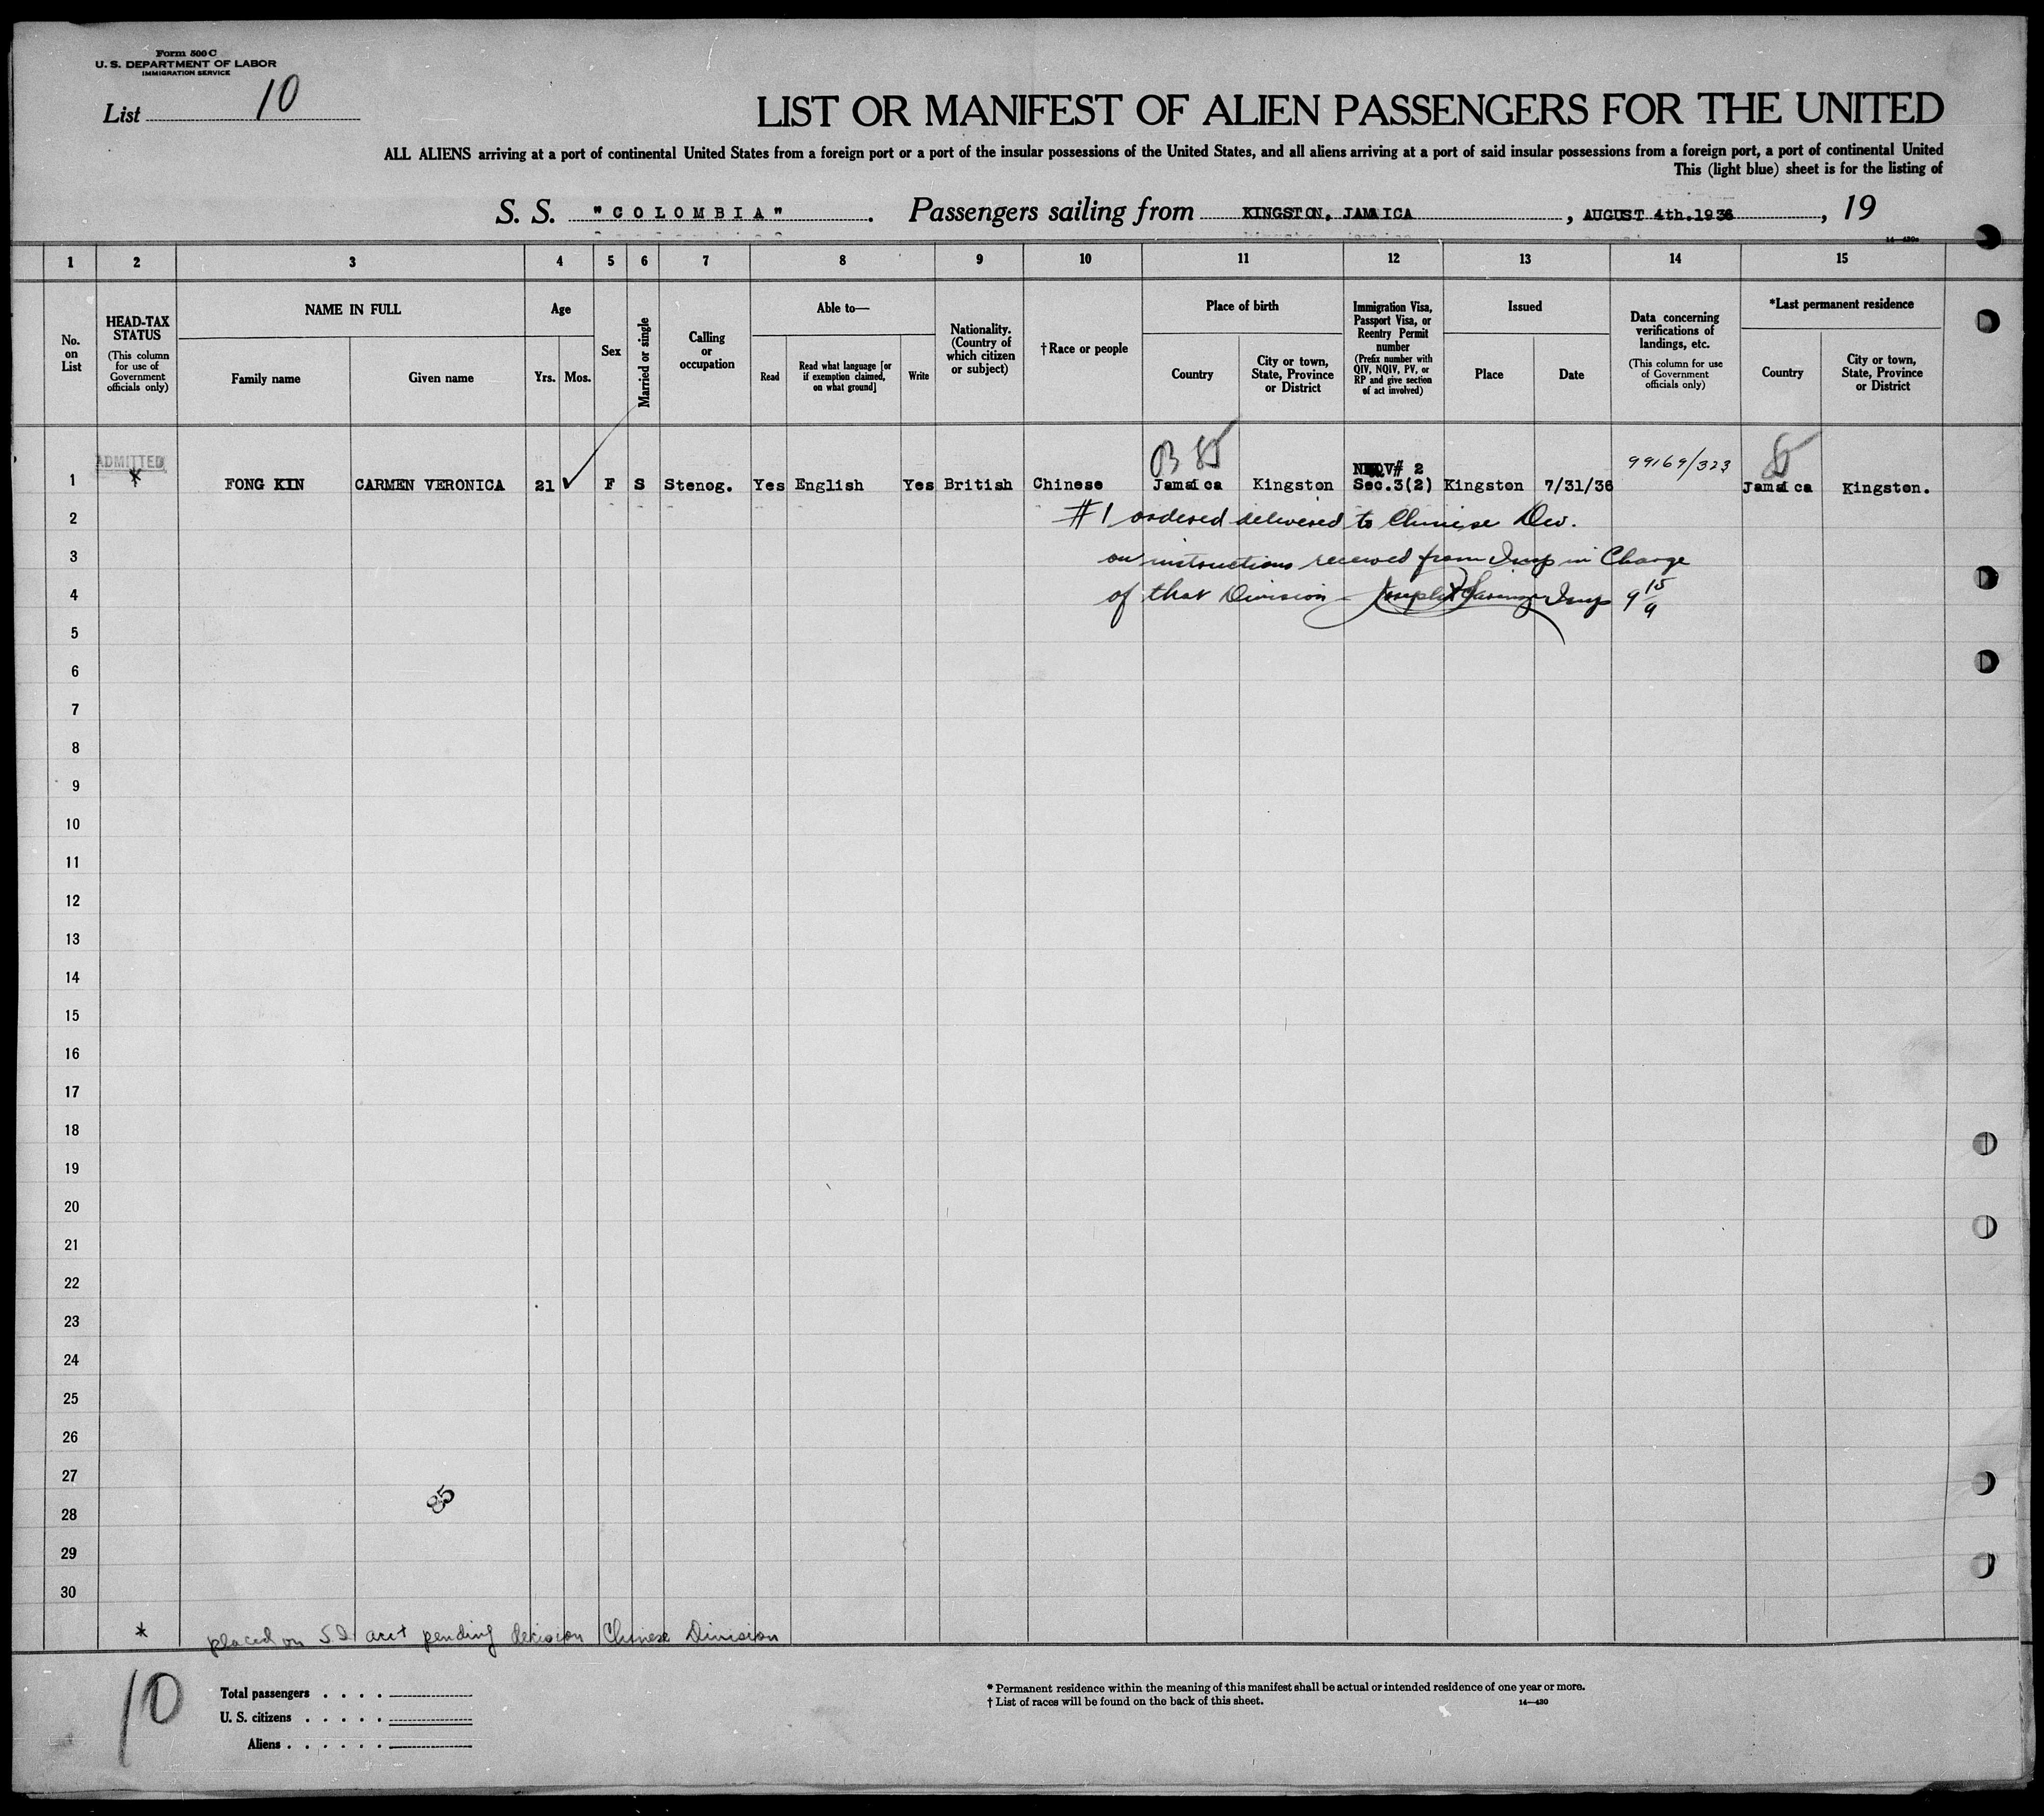 Form 500 C
U. S. DEPARTMENT OF LABOR
IMMIGRATION SERVICE
List 10
LIST OR MANIFEST OF ALIEN PASSENGERS FOR THE UNITED
ALL ALIENS arriving at a port of continental United States from a foreign port or a port of the insular possessions of the United States, and all aliens arriving at a port of said insular possessions from a foreign port, a port of continental United
This (light blue) sheet is for the listing of
S. S. "COLOMBIA". Passengers sailing from KINGSTON, JAMAICA, AUGUST 4th.1936, 19
14—430
1 2 3 4 5 6 7 8 9 10 11 12 13 14 15
No. on List
HEAD-TAX STATUS
(This column for use of Government officials only)
NAME IN FULL
Family name
Given name
Age
Yrs.
Mos.
Sex
Married or single
Calling or occupation
Able to—
Read
Read what language [or if exemption claimed, on what ground]
Write
Nationality. (Country of which citizen or subject)
†Race or people
Place of birth
Country
City or town, State, Province or District
Immigration Visa, Passport Visa, or Reentry Permit number
(Prefix number with QIV, NQIV, PV, or RP and give section of act involved)
Issued
Place
Date
Data concerning verifications of landings, etc.
(This column for use of Government officials only)
*Last permanent residence
Country
City or town, State, Province or District
ADMITTED
B 85 99169/323
V# 2
1 * FONG KIN CARMEN VERONICA 21 ✓ F S Stenog. Yes English Yes British Chinese Jamaica Kingston Sec.3(2) Kingston 7/31/36 Jamaica Kingston.
2 #1 ordered delivered to Chinese Div.
3 on instructions received from Insp in Charge
4 of that Division - Joseph Insp 9 15/9
5
6
7
8
9
10
11
12
13
14
15
16
17
18
19
20
21
22
23
24
25
26
27
85
28
29
30
* placed on S.I. acct pending decision Chinese Division
10
Total passengers . . . .
U. S. citizens . . . . .
Aliens . . . . . .
* Permanent residence within the meaning of this manifest shall be actual or intended residence of one year or more.
† List of races will be found on the back of this sheet.
14—430